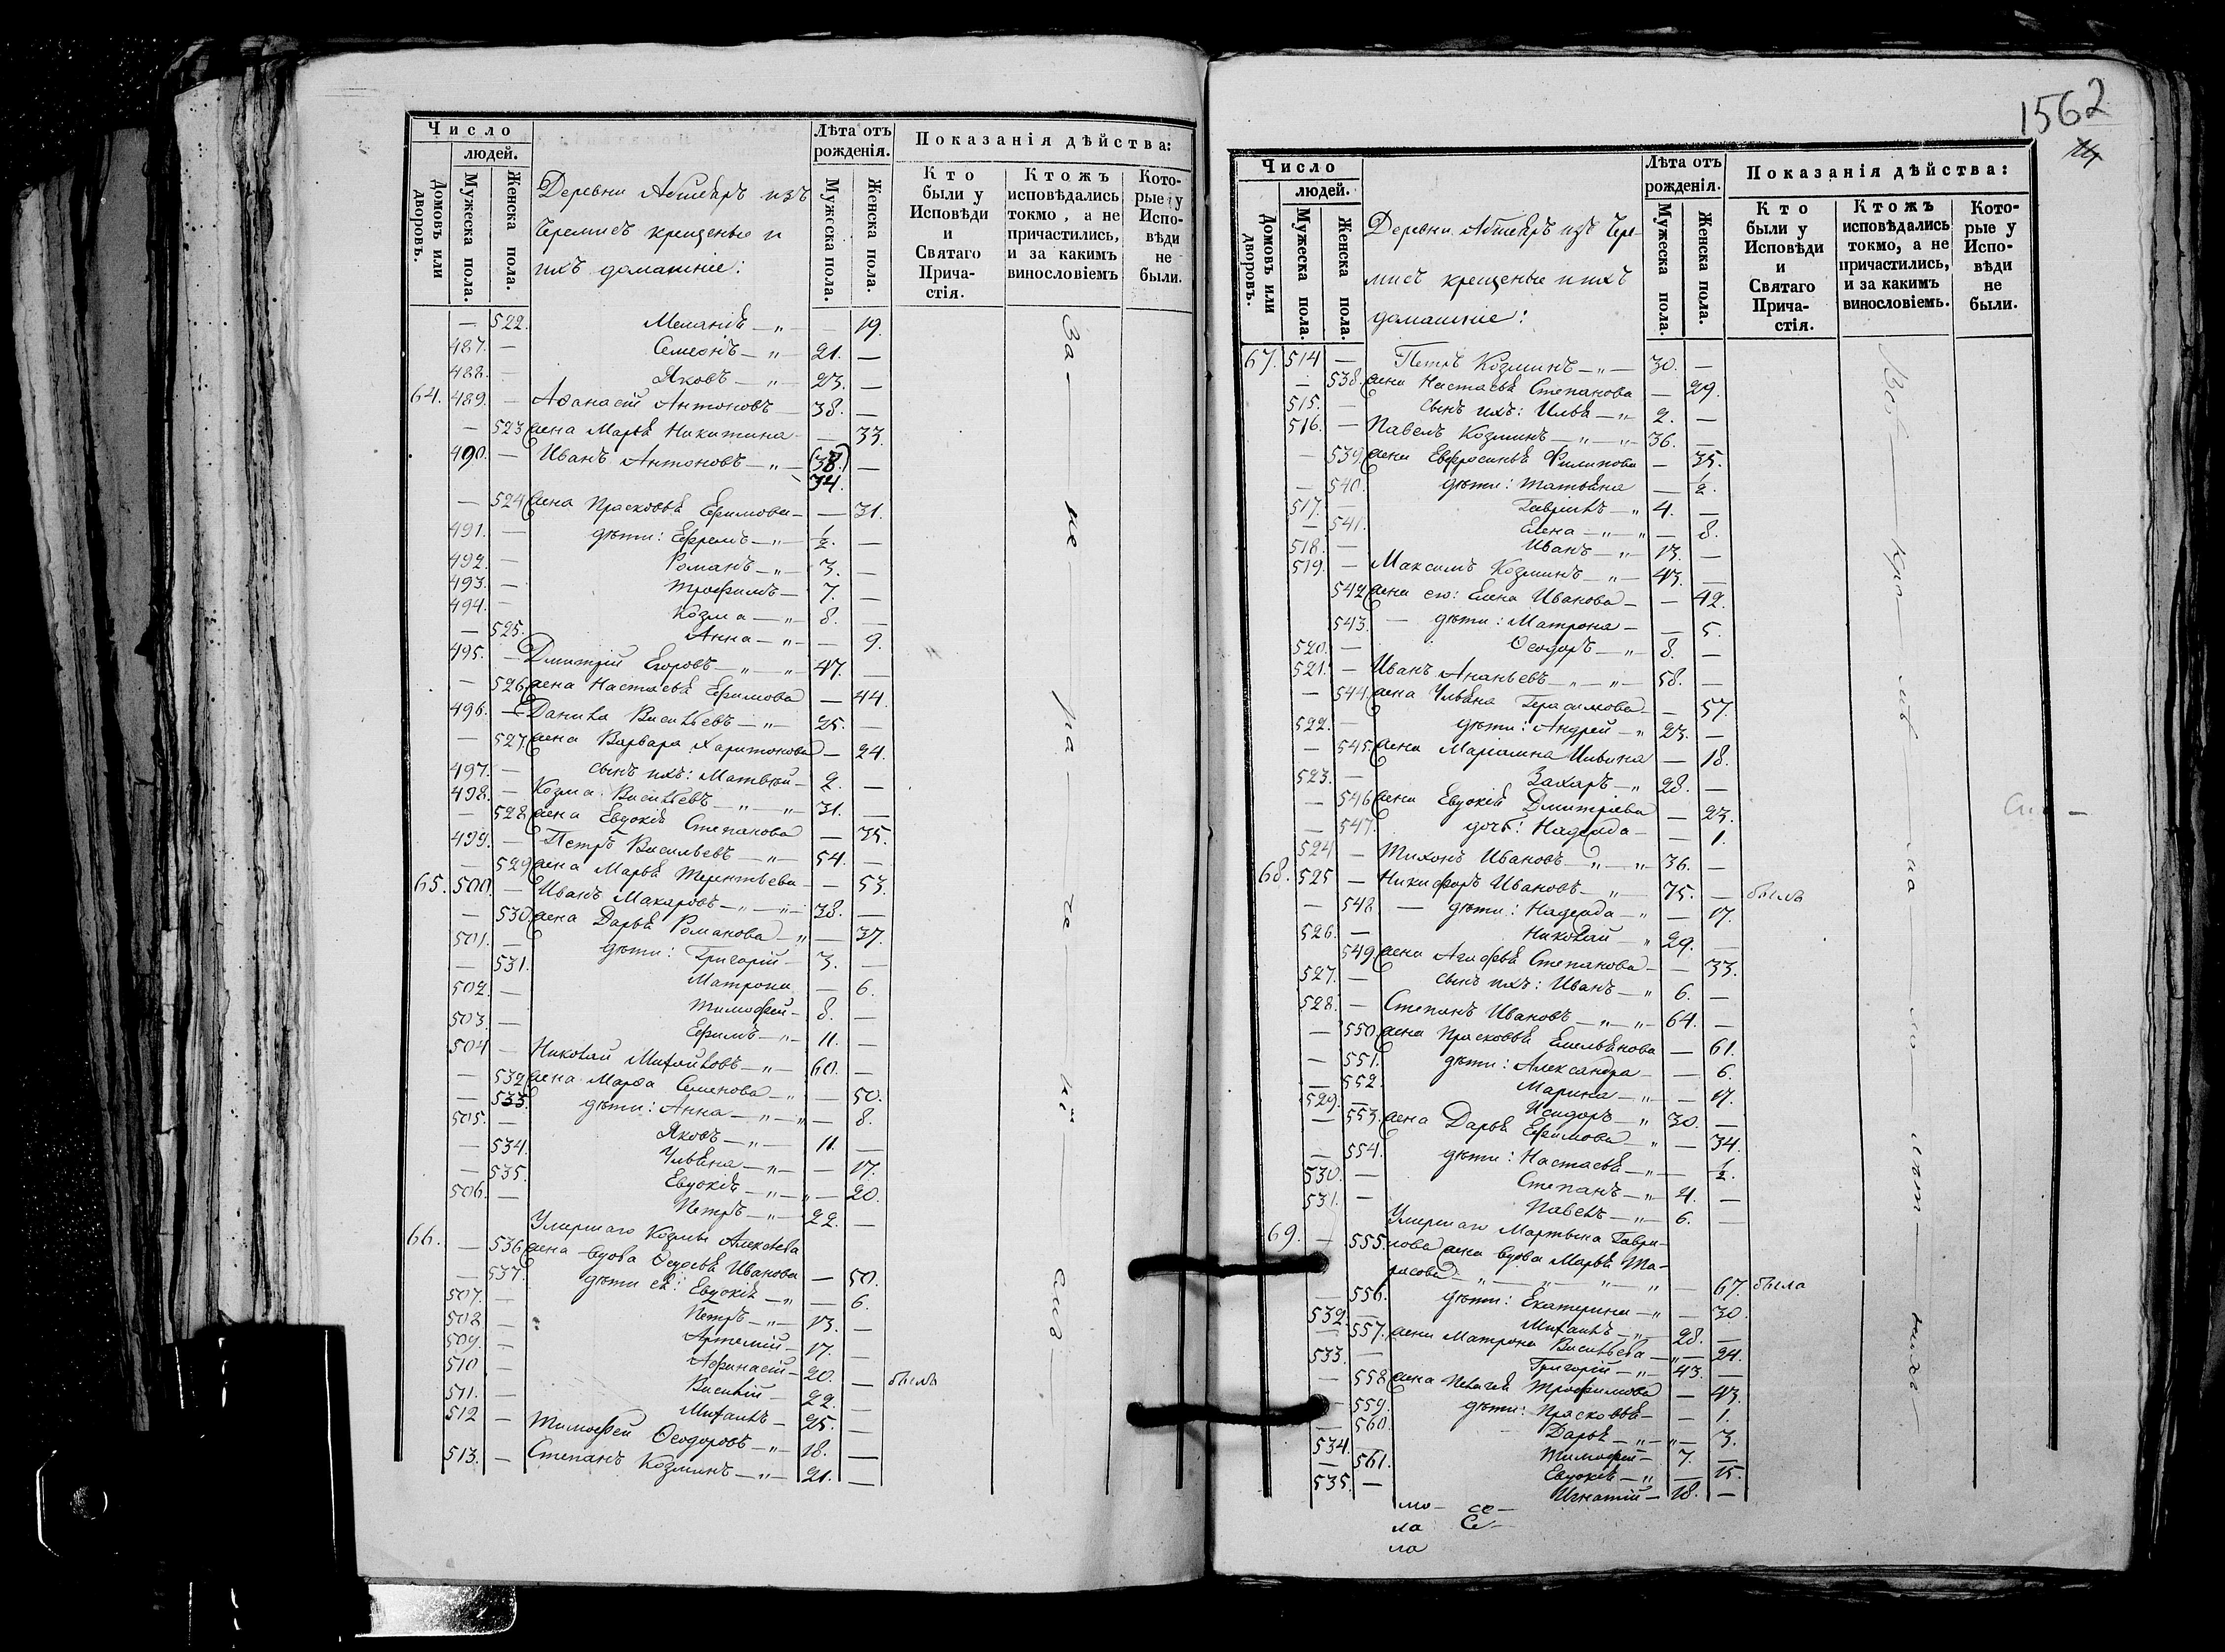 Число
людей.
Домовъ или дворовъ.
Мужеска пола.
Женска пола.
Деревни изъ
Черемисъ крещеные и
ихъ домашніе:
Лѣта отъ рожденія.
Мужеска пола.
Женска пола.
Показанія дѣйства:
Кто были у Исповѣди и Святаго Прича-стія.
Ктожъ исповѣдались токмо, а не причастились, и за какимъ винословіемъ
Кото-рые у Испо-вѣди не были.
— 522. Меланія — „ — — 19.
487. — Семенъ — „ — 21. —
488. — Яковъ — „ — 23. —
64. 489. — Аѳанасій Антоновъ — 38. —
— 523 жена Марья Никитина — — 33.
490. — Иванъ Антоновъ — „ — (38.) —
34.
— 524 жена Прасковья Ефимова — — 31.
491. — дѣти: Ефремъ — „ — 1/2. —
492. — Романъ — „ — 3. —
493. — Трофимъ — 7. —
494. — Козма — „ — 8. —
— 525. Анна — „ — — 9.
495. — Дмитрій Егоровъ — „ — „ — 47. —
— 526 жена Настасья Ефимова — 44.
496. — Данила Васильевъ — „ — 25. —
— 527 жена Варвара Харитонова — 24.
497. — сынъ ихъ: Матвѣй — 2. —
498. — Козма Васильевъ — „ — „ — 31. —
— 528 жена Евдокія Степанова — 35.
499. — Петръ Васильевъ — „ — 54. —
— 529 жена Марья Терентьева — — 53.
65. 500. — Иванъ Макаровъ — „ — „ — 38. —
— 530. жена Дарья Романова — „ — 37.
501. — дѣти: Григорій — 3. —
— 531. Матрона — 6.
502. — Тимофей — 8. —
503. — Ефимъ — „ — 11. —
504 — Николай Михайловъ — „ — 60. —
— 532 жена Марфа Семенова — „ — 50.
— 533. дѣти: Анна — „ — „ — 8.
505. — Яковъ — „ — 11. —
— 534. Ульяна — „ — — 17.
— 535. Евдокія — „ — „ — 20.
506. — Петръ — „ — 22. —
Умершаго Козмы Алексѣева
66. — 536 жена вдова Ѳедосья Иванова — 50.
— 537. дѣти ея: Евдокія — „ — 6.
507. — Петръ — „ — 13. —
508 — Артемій — 17. —
509. — Афанасій — 20. — былъ
510 — Василій — 22. —
511. — Михаилъ — 25. —
512 — Тимофей Ѳеодоровъ — „ — 18. —
513. — Степанъ Козминъ — „ — 21. —
За — не —
1562
Число
людей.
Домовъ или дворовъ.
Мужеска пола.
Женска пола.
Деревни изъ Чере-
мисъ крещеные и ихъ
домашніе:
Лѣта отъ рожденія.
Мужеска пола.
Женска пола.
Показанія дѣйства:
Кто были у Исповѣди и Святаго Прича-стія.
Ктожъ исповѣдались токмо, а не причастились, и за какимъ винословіемъ.
Кото-рые у Испо-вѣди не были.
67. 514 — Петръ Козминъ — „ — 30. —
— 538. жена Настасья Степанова — 29.
515. — сынъ ихъ: Илья — „ 2. —
516. — Павелъ Козминъ — „ — „ — 36. —
— 539 жена Евфросинья Филипова — 35.
— 540. дѣти: Татьяна — 1/2.
517. — Гаврилъ — „ 4. —
— 541. Елена — „ — „ — 8.
518. — Иванъ — „ — 13. —
519. — Максимъ Козминъ — „ — 43. —
542 жена его: Елена Иванова — — 42.
543. — дѣти: Матрона — — 5.
520. — Ѳеодоръ — „ — 8. —
521. — Иванъ Ананьевъ — „ — „ — 58. —
— 544. жена Ульяна Герасимова — — 57.
522. — дѣти: Андрей — „ 23. —
— 545. жена Маріамна Ильина — 18.
523. — Захаръ — „ 28. —
— 546 жена Евдокія Дмитріева — 23.
— 547. дочь: Надежда — — 1.
524 — Тихонъ Ивановъ — „ — „ — 36. —
68. 525 — Никифоръ Ивановъ — „ — 75. — былъ
— 548 — дѣти: Надежда — „ — 17.
526. — Николай — „ 29. —
549. жена Агафья Степанова — — 33.
527. — сынъ ихъ: Иванъ — „ 6. —
528. — Степанъ Ивановъ — „ — „ — 64. —
— 550. жена Прасковья Емельянова — 61.
— 551. дѣти: Александра — — 6.
— 552. Марина — „ — — 17.
529. — Исидоръ — „ 30. —
— 553. жена Дарья Ефимова — „ — 34.
— 554. дѣти: Настасья — „ — 1/2.
530. — Степанъ — „ 4. —
531. — Павелъ — „ — 6. —
Умершаго Мартына Гаври-
69. — 555. лова жена вдова Марья Та-
расова — „ — „ — „ — „ — 67. была
— 556. дѣти: Екатерина — „ — 30.
532. — Михаилъ — „ — 28. —
— 557. жена Матрона Васильева — „ — 24.
533. — Григорій — „ — 43. —
— 558 жена Пелагея Трофимова — 43.
— 559. дѣти: Прасковья — — 1.
— 560. Дарья — „ — „ — 3.
534. — Тимофей — 7. —
— 561. Евдокія — „ — 15.
535. — Игнатій — 18. —